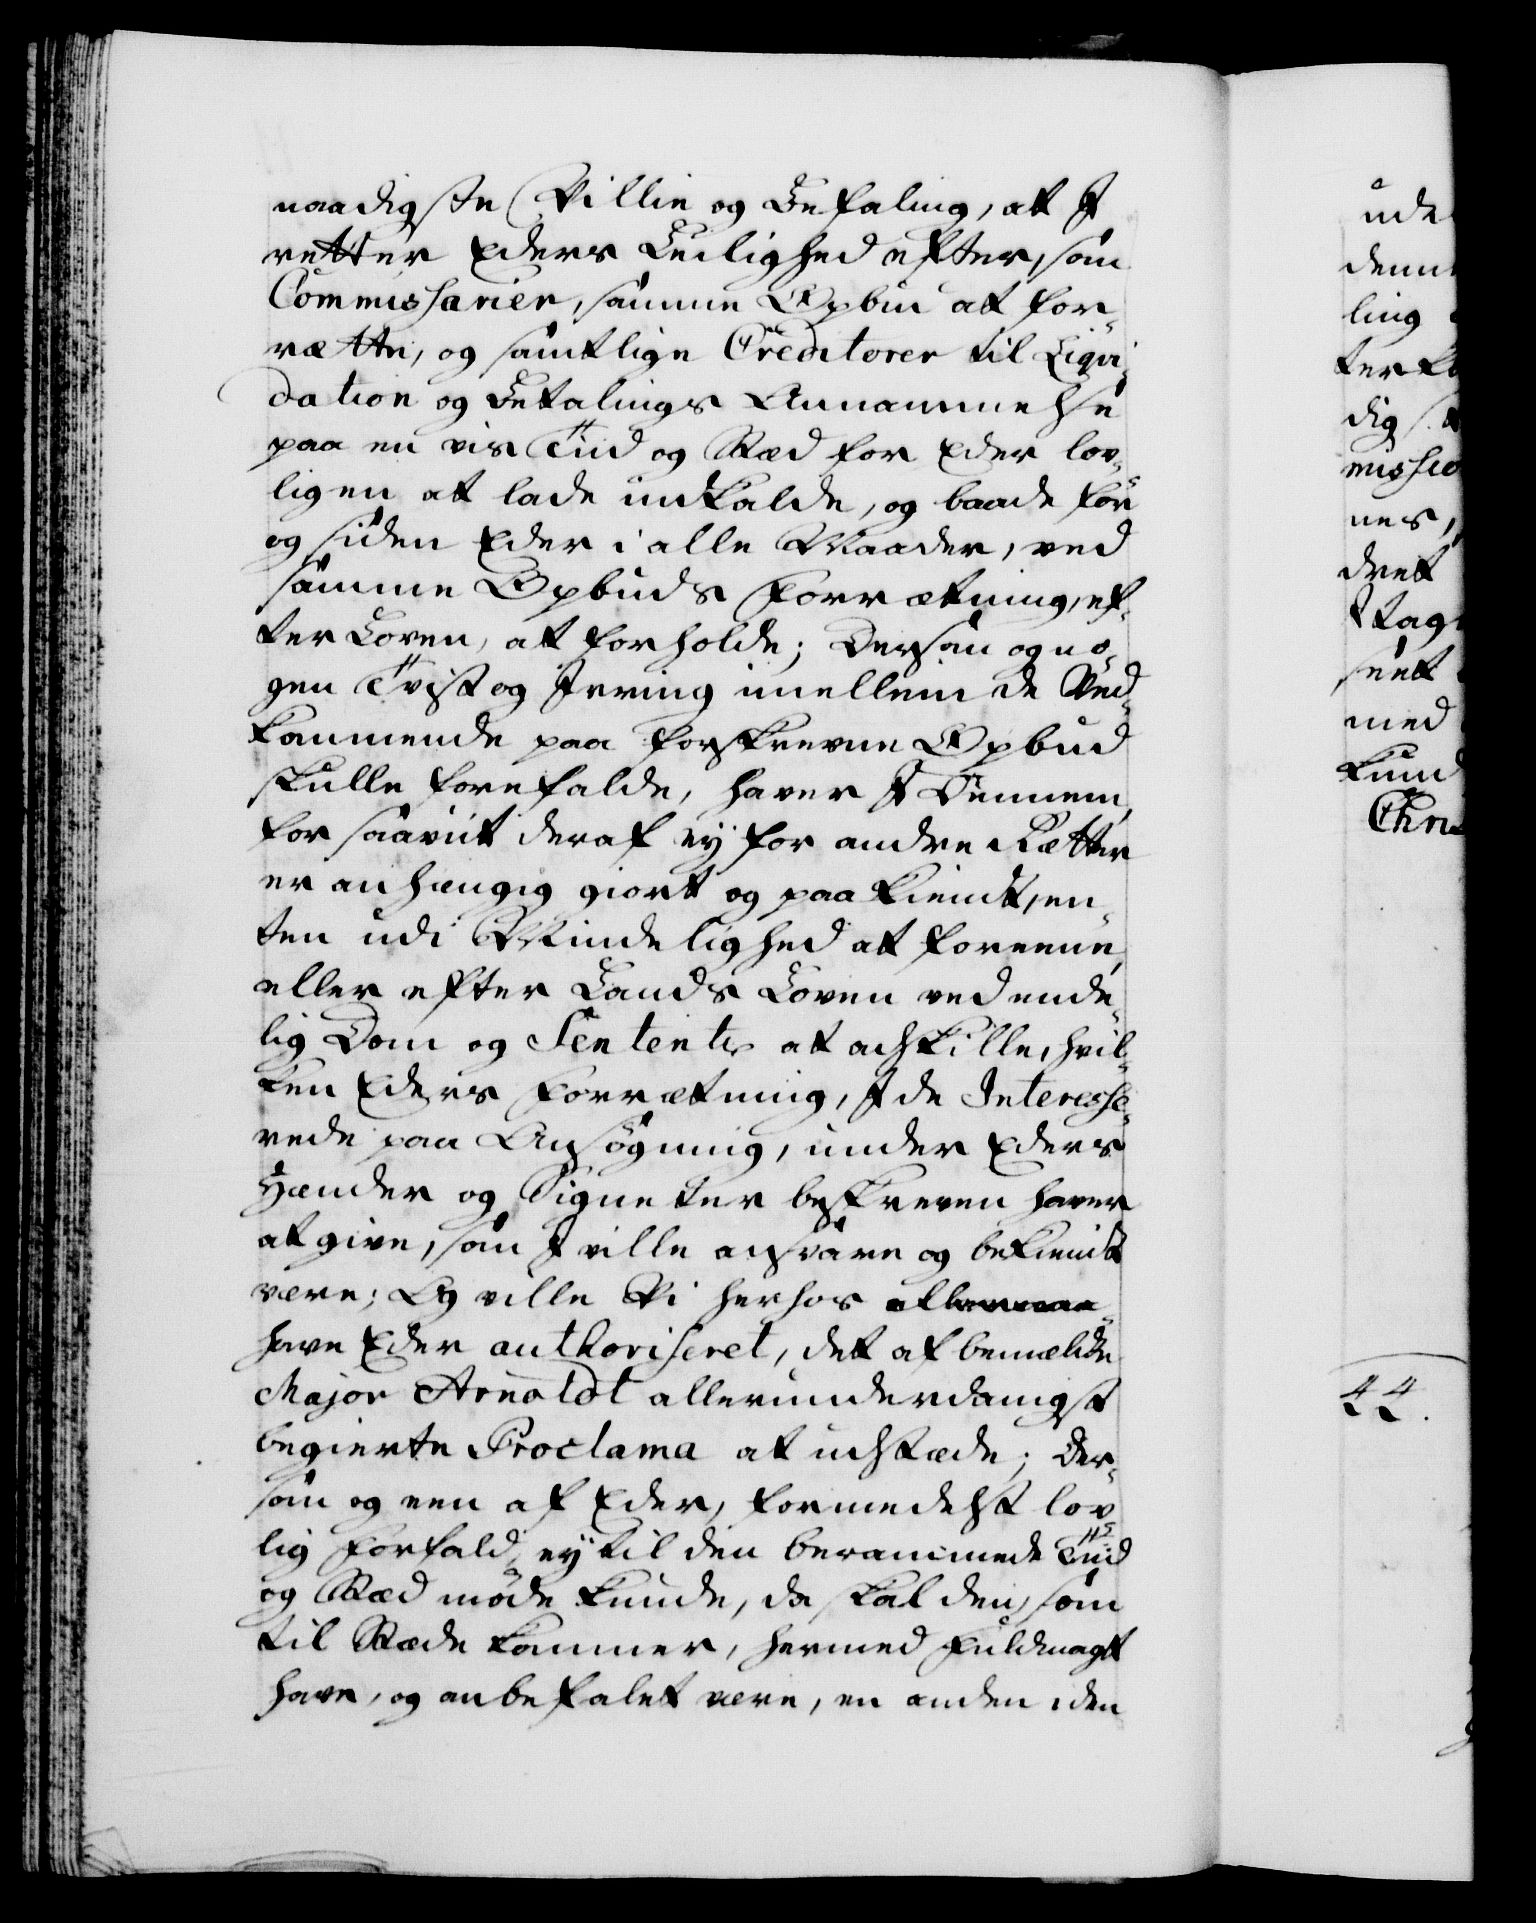 naadigste Villie og Befaling, at I
retter Eders Leilighed efter, som
Commissarier, samme Opbud at for-
rætte, og samtlige Creditorer til Liqvi-
dation og Betalings Annammelse
paa en vis Tiid og Stæd for Eder lov-
ligen at lade indkalde, og baade før
og siden Eder i alle Maader, ved
samme Opbuds Forrætning, ef-
ter Loven, at forholde; Dersom og no-
gen Tvist og Irring imellem de Ved-
kommende paa forskrevne Opbud
skulle forefalde, haver I dennem,
for saaviit deraf ey for andre Rætter
er anhængig giort og paakiendt, en-
ten udi Mindelighed at foreene,
eller efter Lands Loven ved ende-
lig Dom og Sententz at adskille, hvil-
ken Eders Forrætning, I de Interesse-
rede paa Ansøgning, under Eders
Hænder og Signeter beskreven haver
at give, som I ville ansvare og bekiendt
være; Og ville Vi herhos allernaa-
have Eder authoriseret, det af bemælte
Major Arnoldt allerunderdanigst
begierte Proclama at udstæde; Der-
som og een af Eder, formedelst lov-
lig Forfald, ey til den berammede Tiid
og Stæd møde kunde, da skal den, som
til Stæde kommer, hermed Fuldmagt
have, og anbefalet være, en anden i den
ude
denn
ling
terko
dig s
missio
nes,
dret
Itag
seet
med
kund
Chri
44.